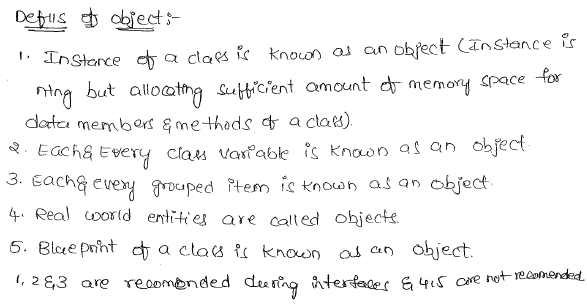 Defns of object:-
1. Instance of a class is known as an object (Instance is
ntng but allocating sufficient amount of memory space for
data members & methods of a class).
2. Each & Every class variable is known as an object.
3. Each & every grouped item is known as an object.
4. Real world entities are called objects.
5. Blueprint of a class is known as an object.
1, 2 & 3 are recomended during interfaces & 4,5 are not recomended